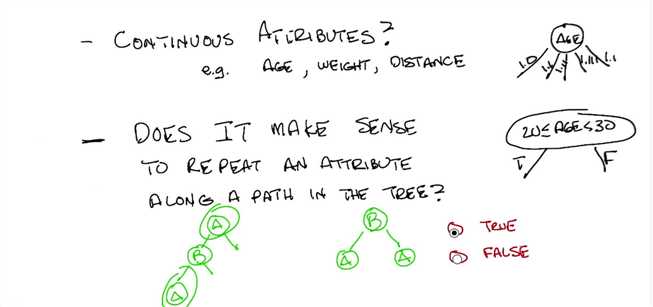 - CONTINUOUS ATTRIBUTES?
e.g. AGE, WEIGHT, DISTANCE
AGE
1.0 1.1 1.11 1.111 1.1
- DOES IT MAKE SENSE
TO REPEAT AN ATTRIBUTE
ALONG A PATH IN THE TREE?
20≤AGE≤30
T F
A
B
A
B
A A
TRUE
FALSE